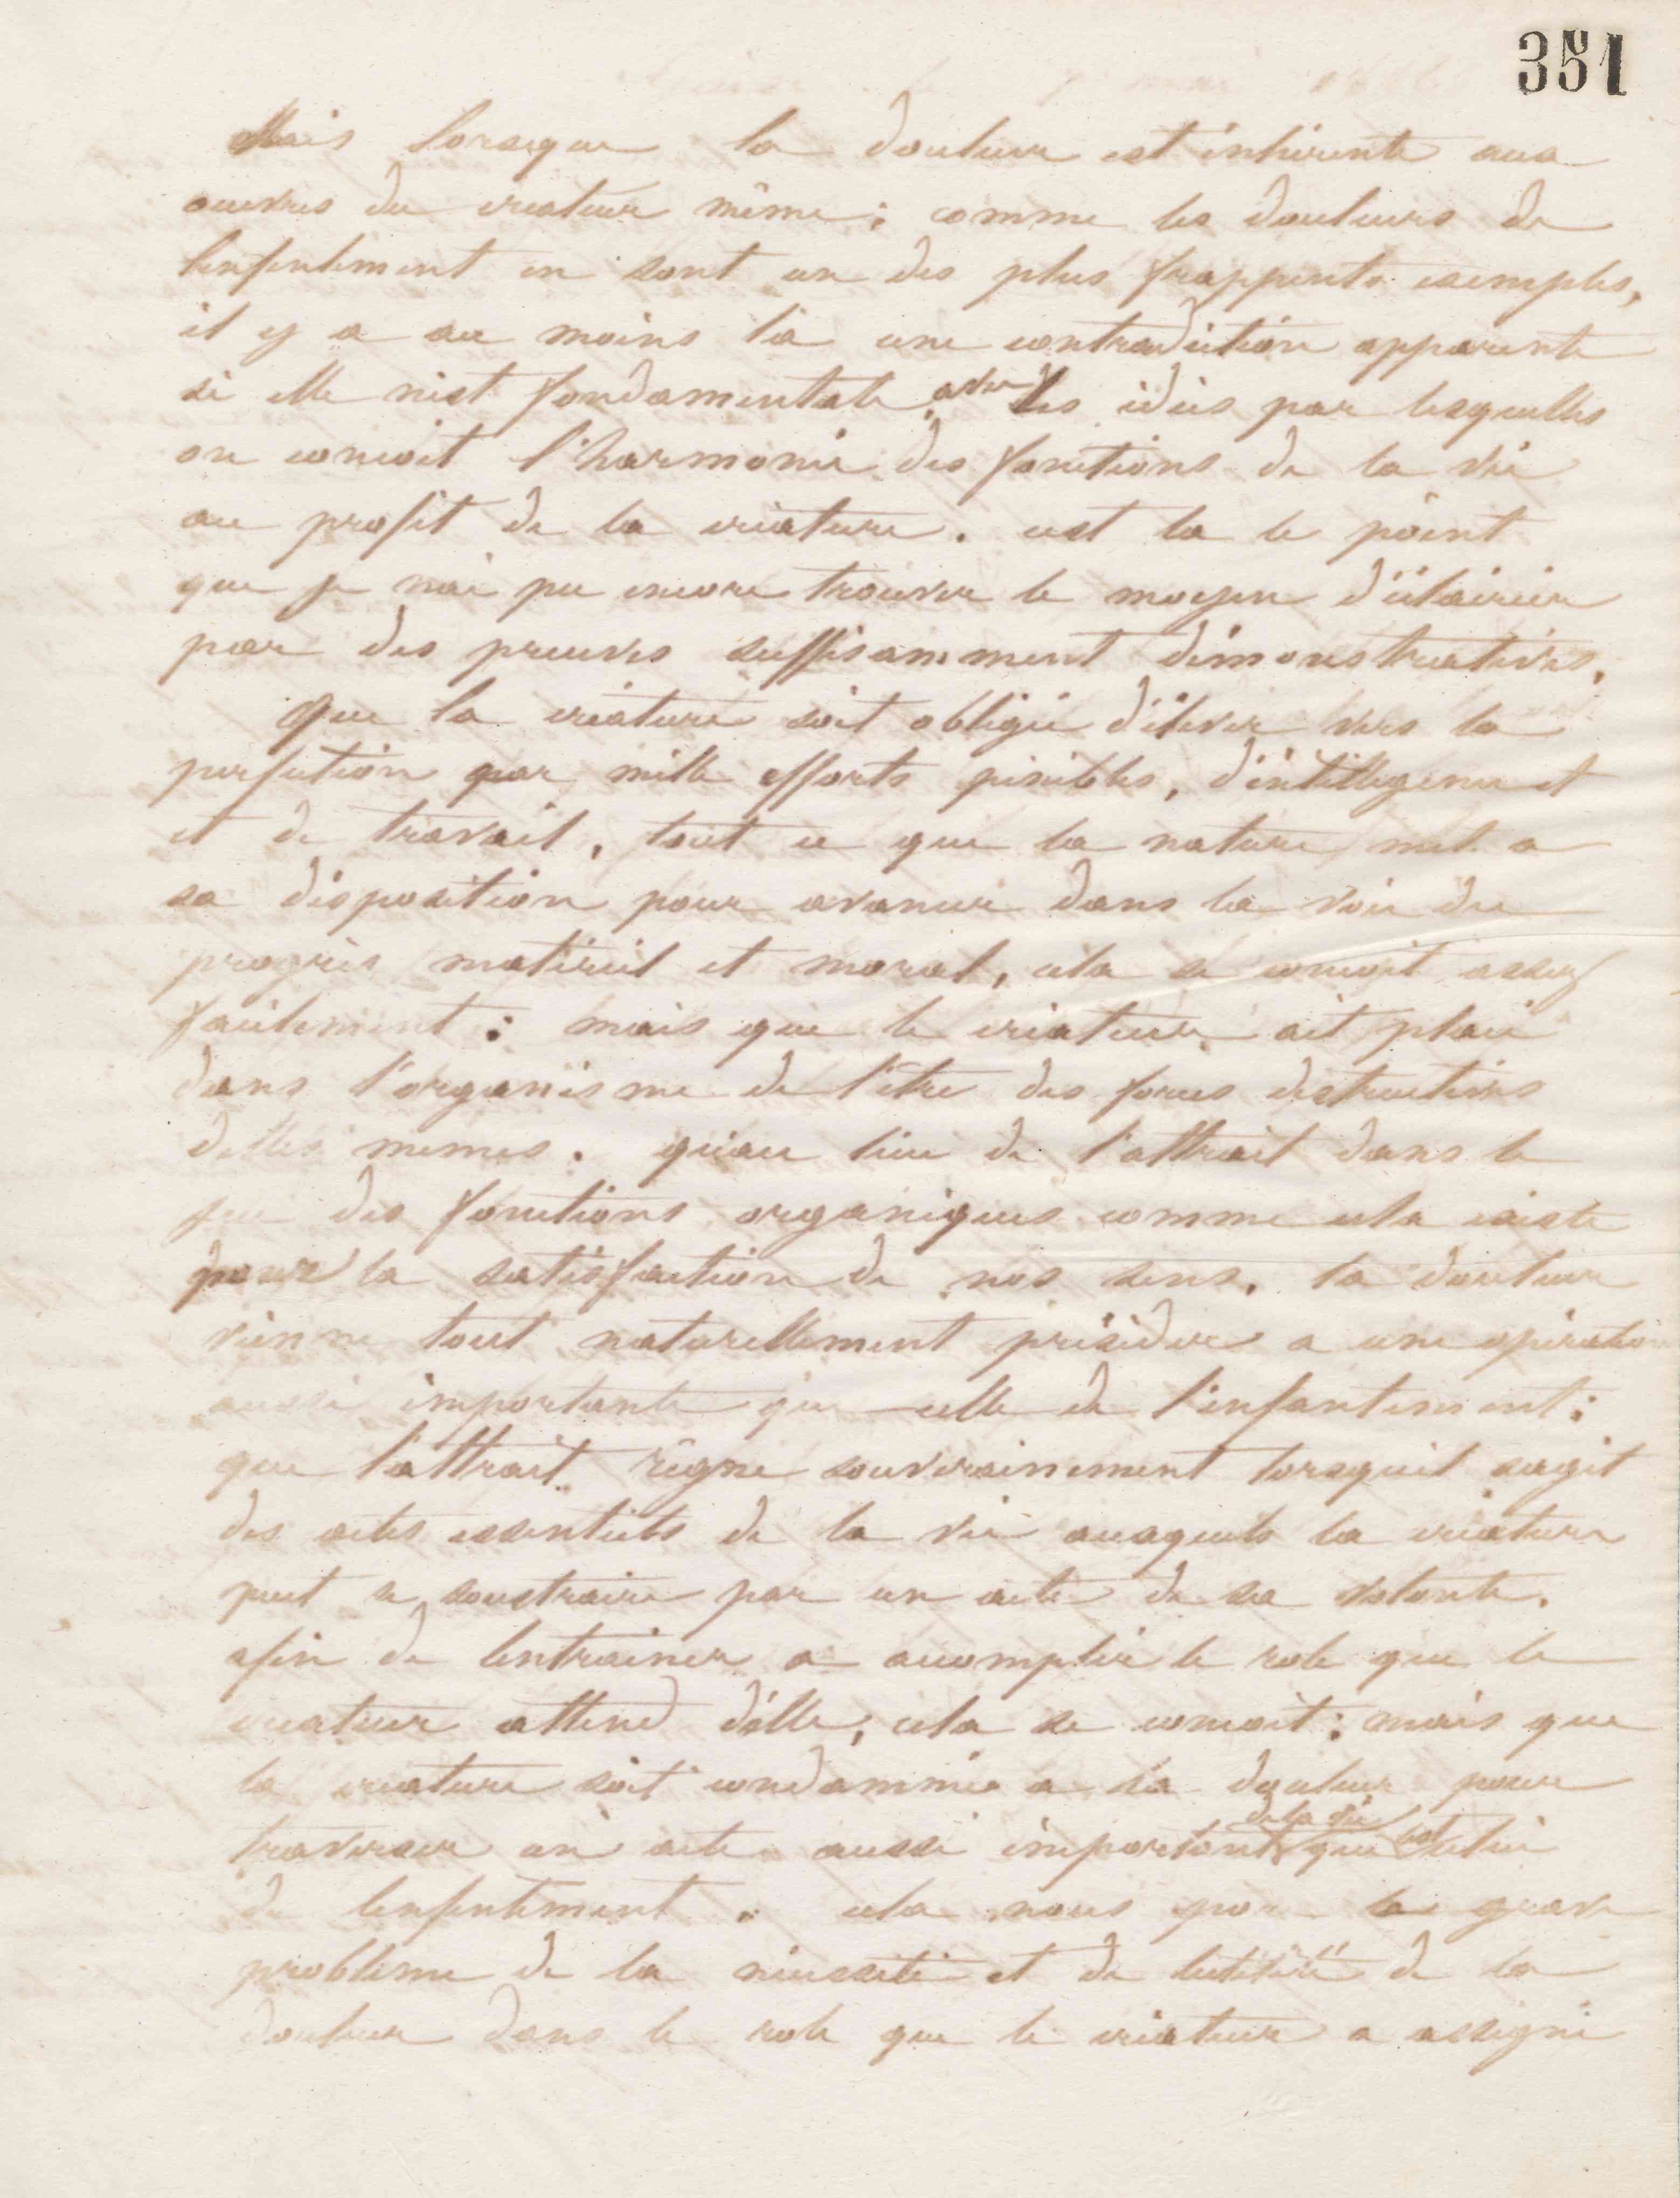 351
Mais lorsque la douleur est inhérente aux
œuvres du créateur même ; comme les douleurs de
lenfentement en sont un des plus frappents exemples,
il y a au moins là une contradiction apparente
si elle nest fondamentale avec les idées par lesquelles
on concoit l'harmonie des fonctions de la vie
au profit de la créature. cest la le point
que je nai pu encore trouver le moyen d'éclaircir
par des preuves suffisamment démonstratives.
Que la créature soit obligée d'élever vers la
perfection par mille efforts pénibles, d'intelligence et
et de travail, tout ce que la nature met a
sa disposition pour avancer dans la voie du
progrès matériel et moral, cela se concoit assez
facilement : mais que le créateur ait placé
dans l'organisme de l'être des forces destructives
delles memes. qu'au lieu de l'attrait dans le
jeu des fonctions organiques comme cela existe
pour la satisfaction de nos sens, la douleur
vienne tout naturellement présider a une opération
aussi importante que celle de l'enfantement ;
que l'attrait règne souverainement lorsquil sagit
des actes essentiels de la vie auxquels la créature
peut se soustraire par un acte de sa volonte.
afin de lentrainer a accomplir le role que le
créateur attend d'elle, cela se concoit : mais que
la créature soit condamnée a la douleur pour
de la vie
traverser un acte aussi important que lest celui
de lenfentement. cela nous pose le grave
problème de la nécessité et de lutilité de la
douleur dans le role que le créateur a assigné